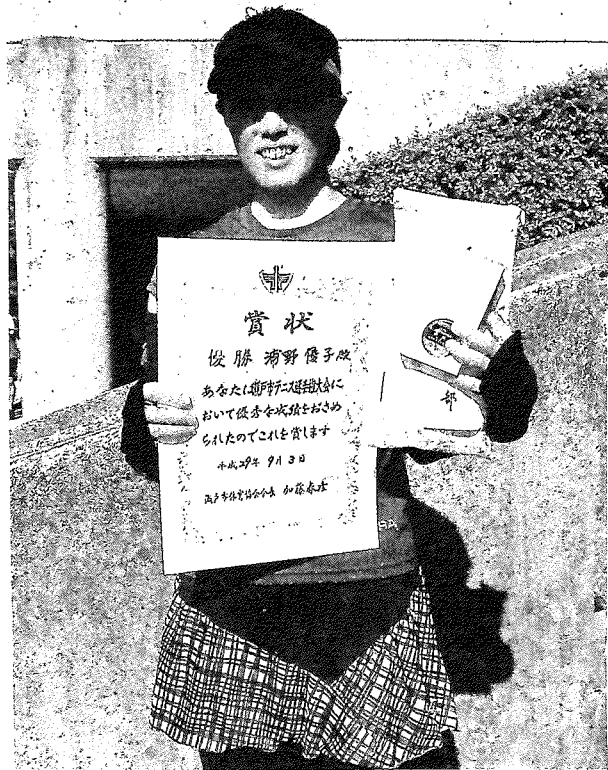 賞状
優勝 浦野優子殿
あなたは瀬戸市テニス選手権大会に
おいて優秀な成績をおさめ
られたのでこれを賞します
平成29年9月3日
瀬戸市体育協会会長 加藤
部
SA